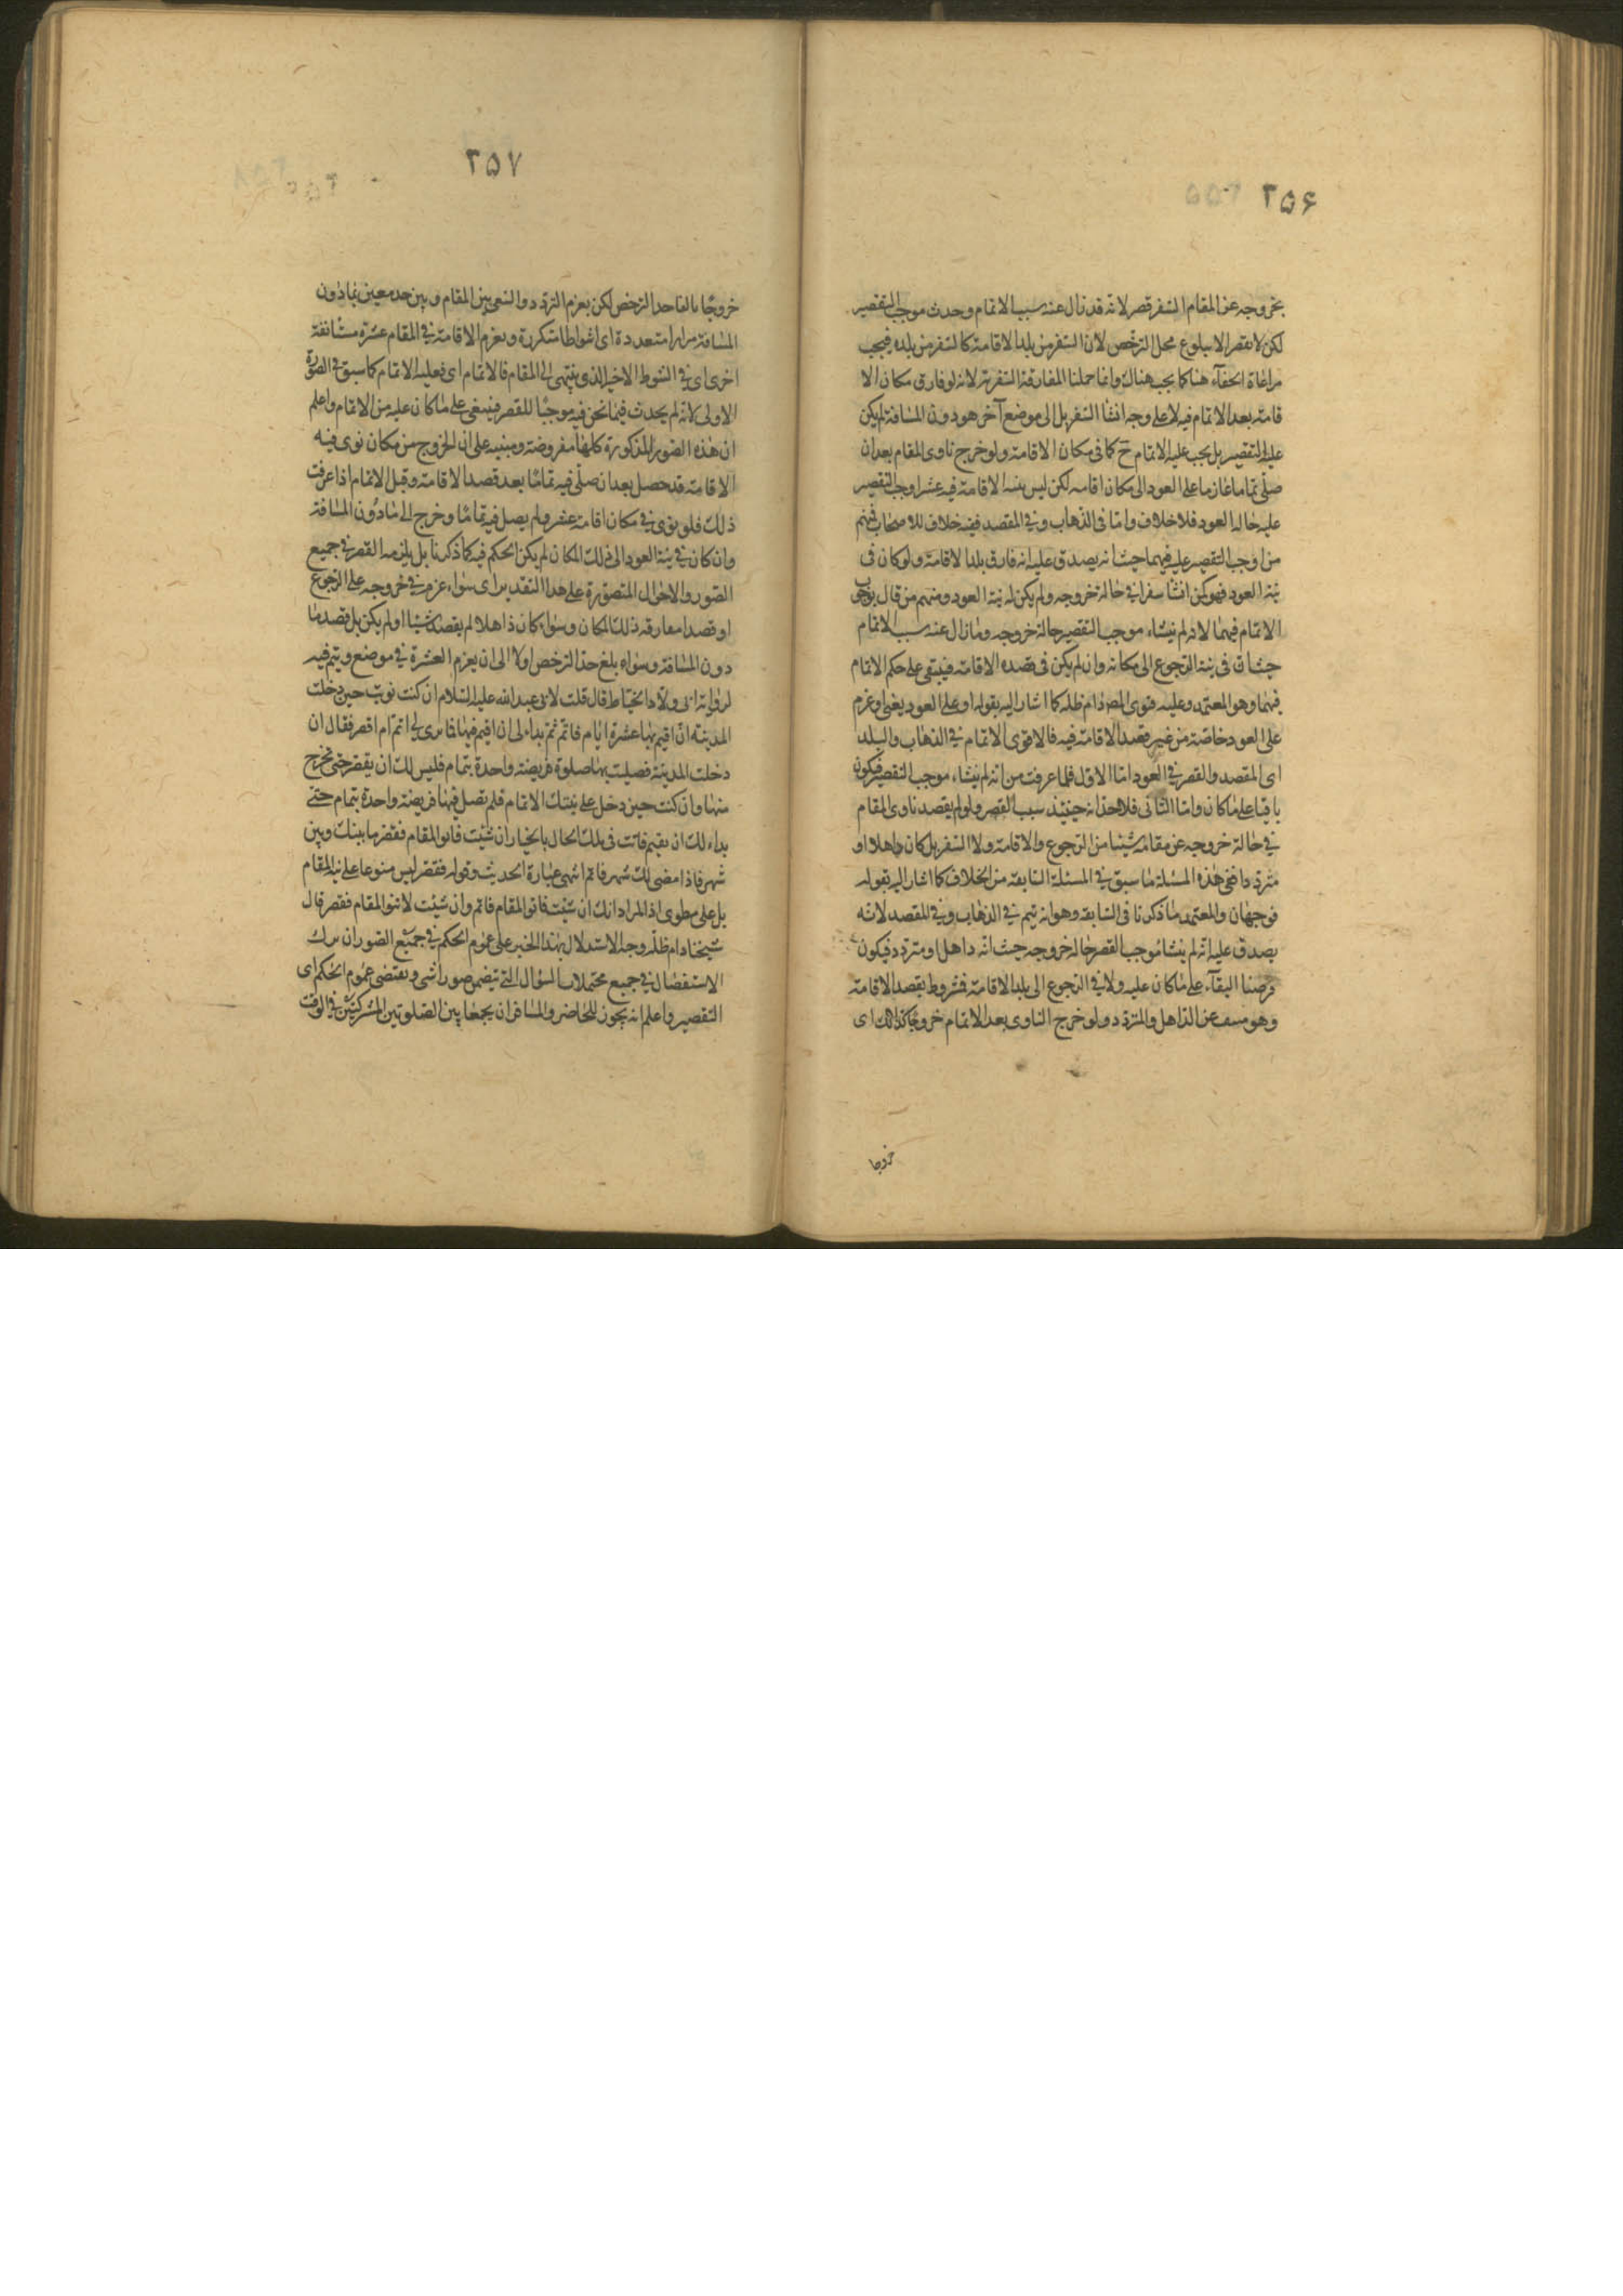 ۲۵۶
بخروجه عن المقام السفر قصر لانه قد زال عنه سبب الاتمام وحدث موجب التقصير
لكن لا يقصر الا ببلوغ محل الترخص لان السفر من بلد الاقامة كالسفر من بلده فيجب
مراعاة الخفآء هنا كما يجب هناك وانما حملنا المفارقة السفرية لانه لو فارق مكان الا
قامة بعد الاتمام فيه لا على وجه انشا السفر بل الى موضع آخر هو دون المسافة لم يكن
عليه التقصير بل يجب عليه الاتمام ح كما فى مكان الاقامة ولو خرج ناوى المقام بعد ان
صلى تماما عازما على العود الى مكان اقامه لكن ليس بنية الاقامة فيه عشرا وجب التقصير
عليه حالة العود فلا خلاف واما فى الذهاب وفي المقصد ففيه خلاف للاصحاب فمنهم
من اوجب التقصير عليه فيهما حيث انه يصدق عليه انه فارق بلد الاقامة ولو كان فى
نية العود فهو كمن انشا سفرا في حالة خروجه ولم يكن له نية العود ومنهم من قال بوجوب
الاتمام فيهما لانه لم ينشاء موجب التقصير حالة خروجه وما زال عنه سبب الاتمام
حيث ان فى نية الرجوع الى مكانه وان لم يكن فى قصده الاقامة فيبقى على حكم الاتمام
فيهما وهو المعتمد وعليه فتوى المص دام ظله كما اشار اليه بقوله او على العود يعنى او عزم
على العود خاصة من غير قصد الاقامة فيه فالاقوى الاتمام في الذهاب والبلد
اى المقصد والقصر في العود اما الاول فلما عرفت من انه لم ينشاء موجب التقصير فيكون
باقيا على ما كان واما الثانى فلاحذانه حينئذ سبب القصر ولو لم يقصد ناوى المقام
في حالة خروجه عن مقامه شيئا من الرجوع والاقامة ولا السفر بل كان ذاهلا او
مترددا ففى هذه المسئلة ما سبق في المسئلة السابقة من الخلاف كما اشار اليه بقوله
فوجهان والمعتمد ما ذكرنا فى السابقة وهو انه يتم في الذهاب وفي المقصد لانه
يصدق عليه انه لم ينشا موجب القصر حالة خروجه حيث انه ذاهل او متردد فيكون
فرضنا البقآء على ما كان عليه ولا في الرجوع الى بلد الاقامة فمشروط بقصد الاقامة
وهو منتف عن الذاهل والمتردد ولو خرج الناوى بعد الاتمام خروجًا كذالك اى
خروجا
۲۵۷
خروجًا بالغا حد الترخص لكن بعزم التردد والسعى بين المقام وبين حد معين بمادون
المسافة مرارا متعددة اى اشواطا متكررة وبعزم الاقامة في المقام عشرة مستانفة
اخرى اى في الشوط الاخير الذى ينتهى الى المقام فالاتمام اى فعليه الاتمام كما سبق فى الصورة
الاولى لانه لم يحدث فيما نحن فيه موجبًا للقصر فيبقى على ما كان عليه من الاتمام واعلم
ان هذه الصور المذكورة كلها مفروضة ومبنيه على ان الخروج من مكان نوى فيه
الاقامة قد حصل بعد ان صلّى فيه تمامًا بعد قصد الاقامة وقبل الاتمام اذا عرفت
ذلك فلو نوى في مكان اقامة عشر ولم يصل فيه تمامًا وخرج الى مادون المسافة
وان كان في نية العود الى ذلك المكان لم يكن الحكم فيه كما ذكرنا بل يلزمه القصر في جميع
الصور والاحوال المتصورة على هذا التقدير اى سواء عزم في خروجه على الرجوع
او قصد مفارقة ذلك المكان وسواء كان ذاهلا لم يقصد شيئا او لم يكن بل قصد ما
دون المسافة وسواء بلغ حد الترخص اولا الى ان يعزم العشرة في موضع ويتم فيه
لرواية ابى ولاد الحناط قال قلت لابى عبد الله عليه السلام ان كنت نويت حين دخلت
المدينة ان اقيم بها عشرة ايام فاتم ثم بداء لى ان اقيم فيها فما ترى لي اتم ام اقصر فقال ان
دخلت المدينة فصليت بها صلوة فريضة واحدة بتمام فليس لك ان يقصر حتى تخرج
منها وان كنت حين دخل على نيتك الاتمام فلم يصل فيها فريضة واحدة بتمام حتى
بداء لك ان يقيم فانت فى تلك الحال بالخيار ان شئت فانو المقام فقصر ما بينك وبين
شهر فاذا مضى لك شهر فاتم انتهى عبارة الحديث وقوله فقصر ليس منوعا على نية المقام
بل على مطوى اذ المراد انك ان شئت فانو المقام فاتم وان شئت لا تنو المقام فقصر قال
شيخنا دام ظلّه وجه الاستدلال بهذا الخبر على عموم الحكم في جميع الصور ان ترك
الاستفصال في جميع محتملات السؤال التي تتضمن صورا شى ويقتضى عموم الحكم اى
التقصير واعلم انه يجوز للحاضر والمسافر ان يجمعا بين الصلوتين المشركتين في الوقت